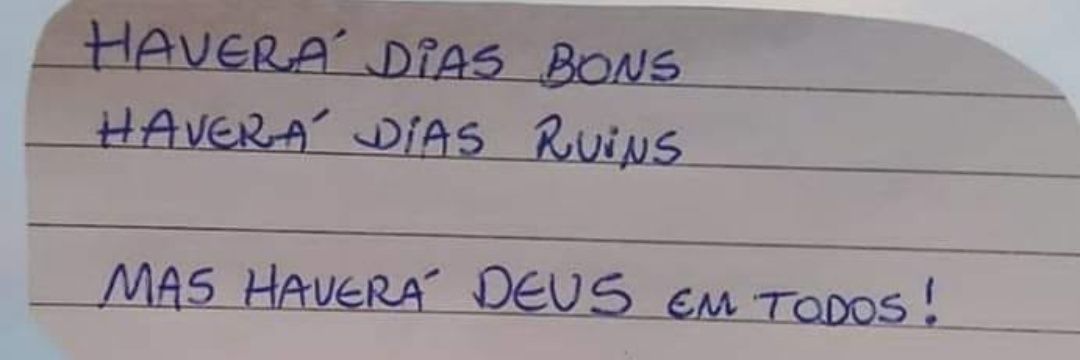 HAVERÁ DIAS BONS
HAVERÁ DIAS RUINS
MAS HAVERÁ DEUS EM TODOS!